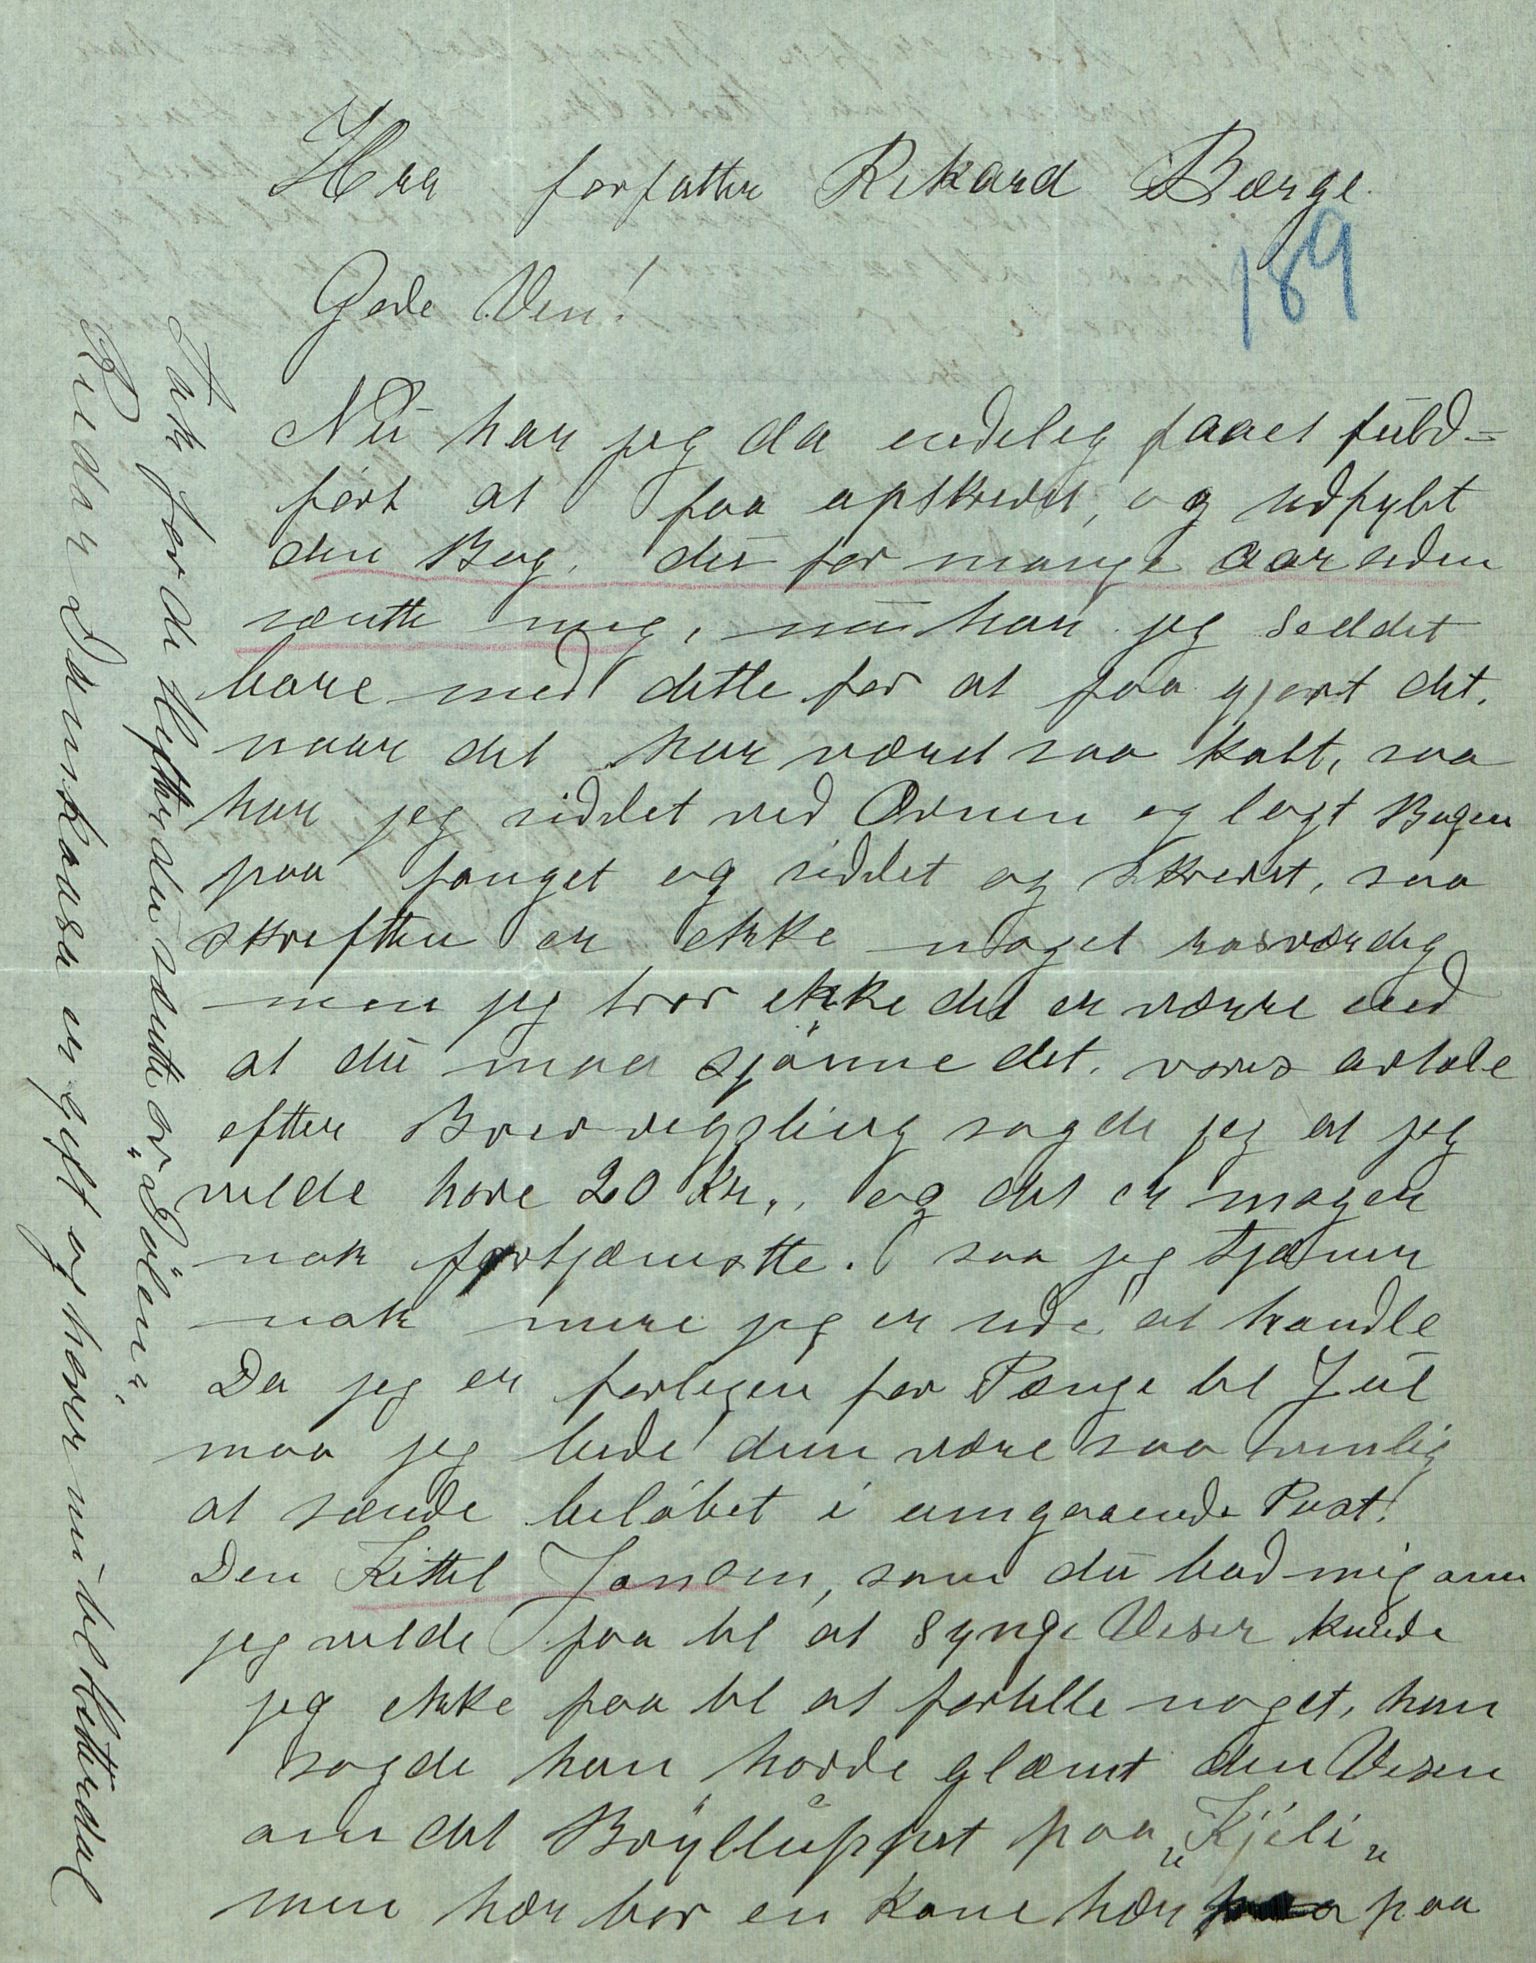 Hrr forfatter Rikard Berge.
189
Gode Ven!
Nu har jeg da endelig faaet fuld=
ført at faa opskrevet, og udfylt
den Bog. du for mange aar siden
sænte mig, nu har jeg Seddet
bare med dette for at faa gjort det.
naar det har været saa kalt, saa
har jeg siddet ved Ovnen og lagt Bogen
paa fanget og siddet og skrevet, saa
skriften er ekke noget rosværdig
men jeg tror ekke det er værre end
at du maa sjønne det. vores avtale
efter Brevvegsling sagde jeg at jeg
vilde have 20 Kr,. og det er mager
nok fortjænstte. saa jeg tjæner
nok mere jeg er ude at handle
Da jeg er forlegen for Pænge til Jul
maa jeg bede dem være saa venlig
at sænde beløbet i omgaaende Post!
Den Kittil Jonsen, som du bad mig om
jeg vilde faa til at Synge Viser kunde
jeg ekke faa til at fortelle noget, han
sagde han havde glæmt den Visen
om det Bryllupput paa „Kjeli„
men hær bor en Kone hær paa
Tak for de Hefter du sænte av „Dølen„
Reidar Dounkaasa er gift og harer nu til Hitterdal